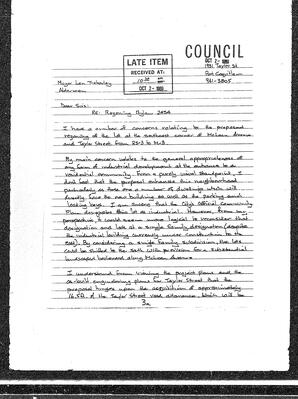 COUNCIL
OCT 2 1989
LATE ITEM
RECEIVED AT:
OCT 2 1989
1931 Taylor St.
Port Coquitlam
941-3805
Mayor Len Traboulay
Aldermen
Dear Sirs:
Re: Rezoning Bylaw
I have a number of concerns relating to the proposed
rezoning of the lot at the southeast corner of McLean Avenue
and Taylor Street from RS-3 to M-3.
My main concern relates to the general appropriateness of
any form of industrial development at the entrance to a
residential community. From a purely visual standpoint, I
don't feel that the proposal enhances this neighbourhood
particularly as there are a number of dwellings which will
directly face the new building as well as the parking and
loading bays. I am aware that the City's Official Community
Plan designates this lot as industrial. However, from my
perspective it would seem more logical to reconsider that
designation and look at a single family designation (despite
the industrial building currently under construction to the
east). By considering a single family subdivision, the lots
could be shifted to the south with provision for a substantial
landscaped boulevard along McLean Avenue.
I understand from viewing the project plans and the
as-built engineering plans for Taylor Street that the
proposal hinges upon the acquisition of approximately
16.5ft of the Taylor Street road allowance which will be